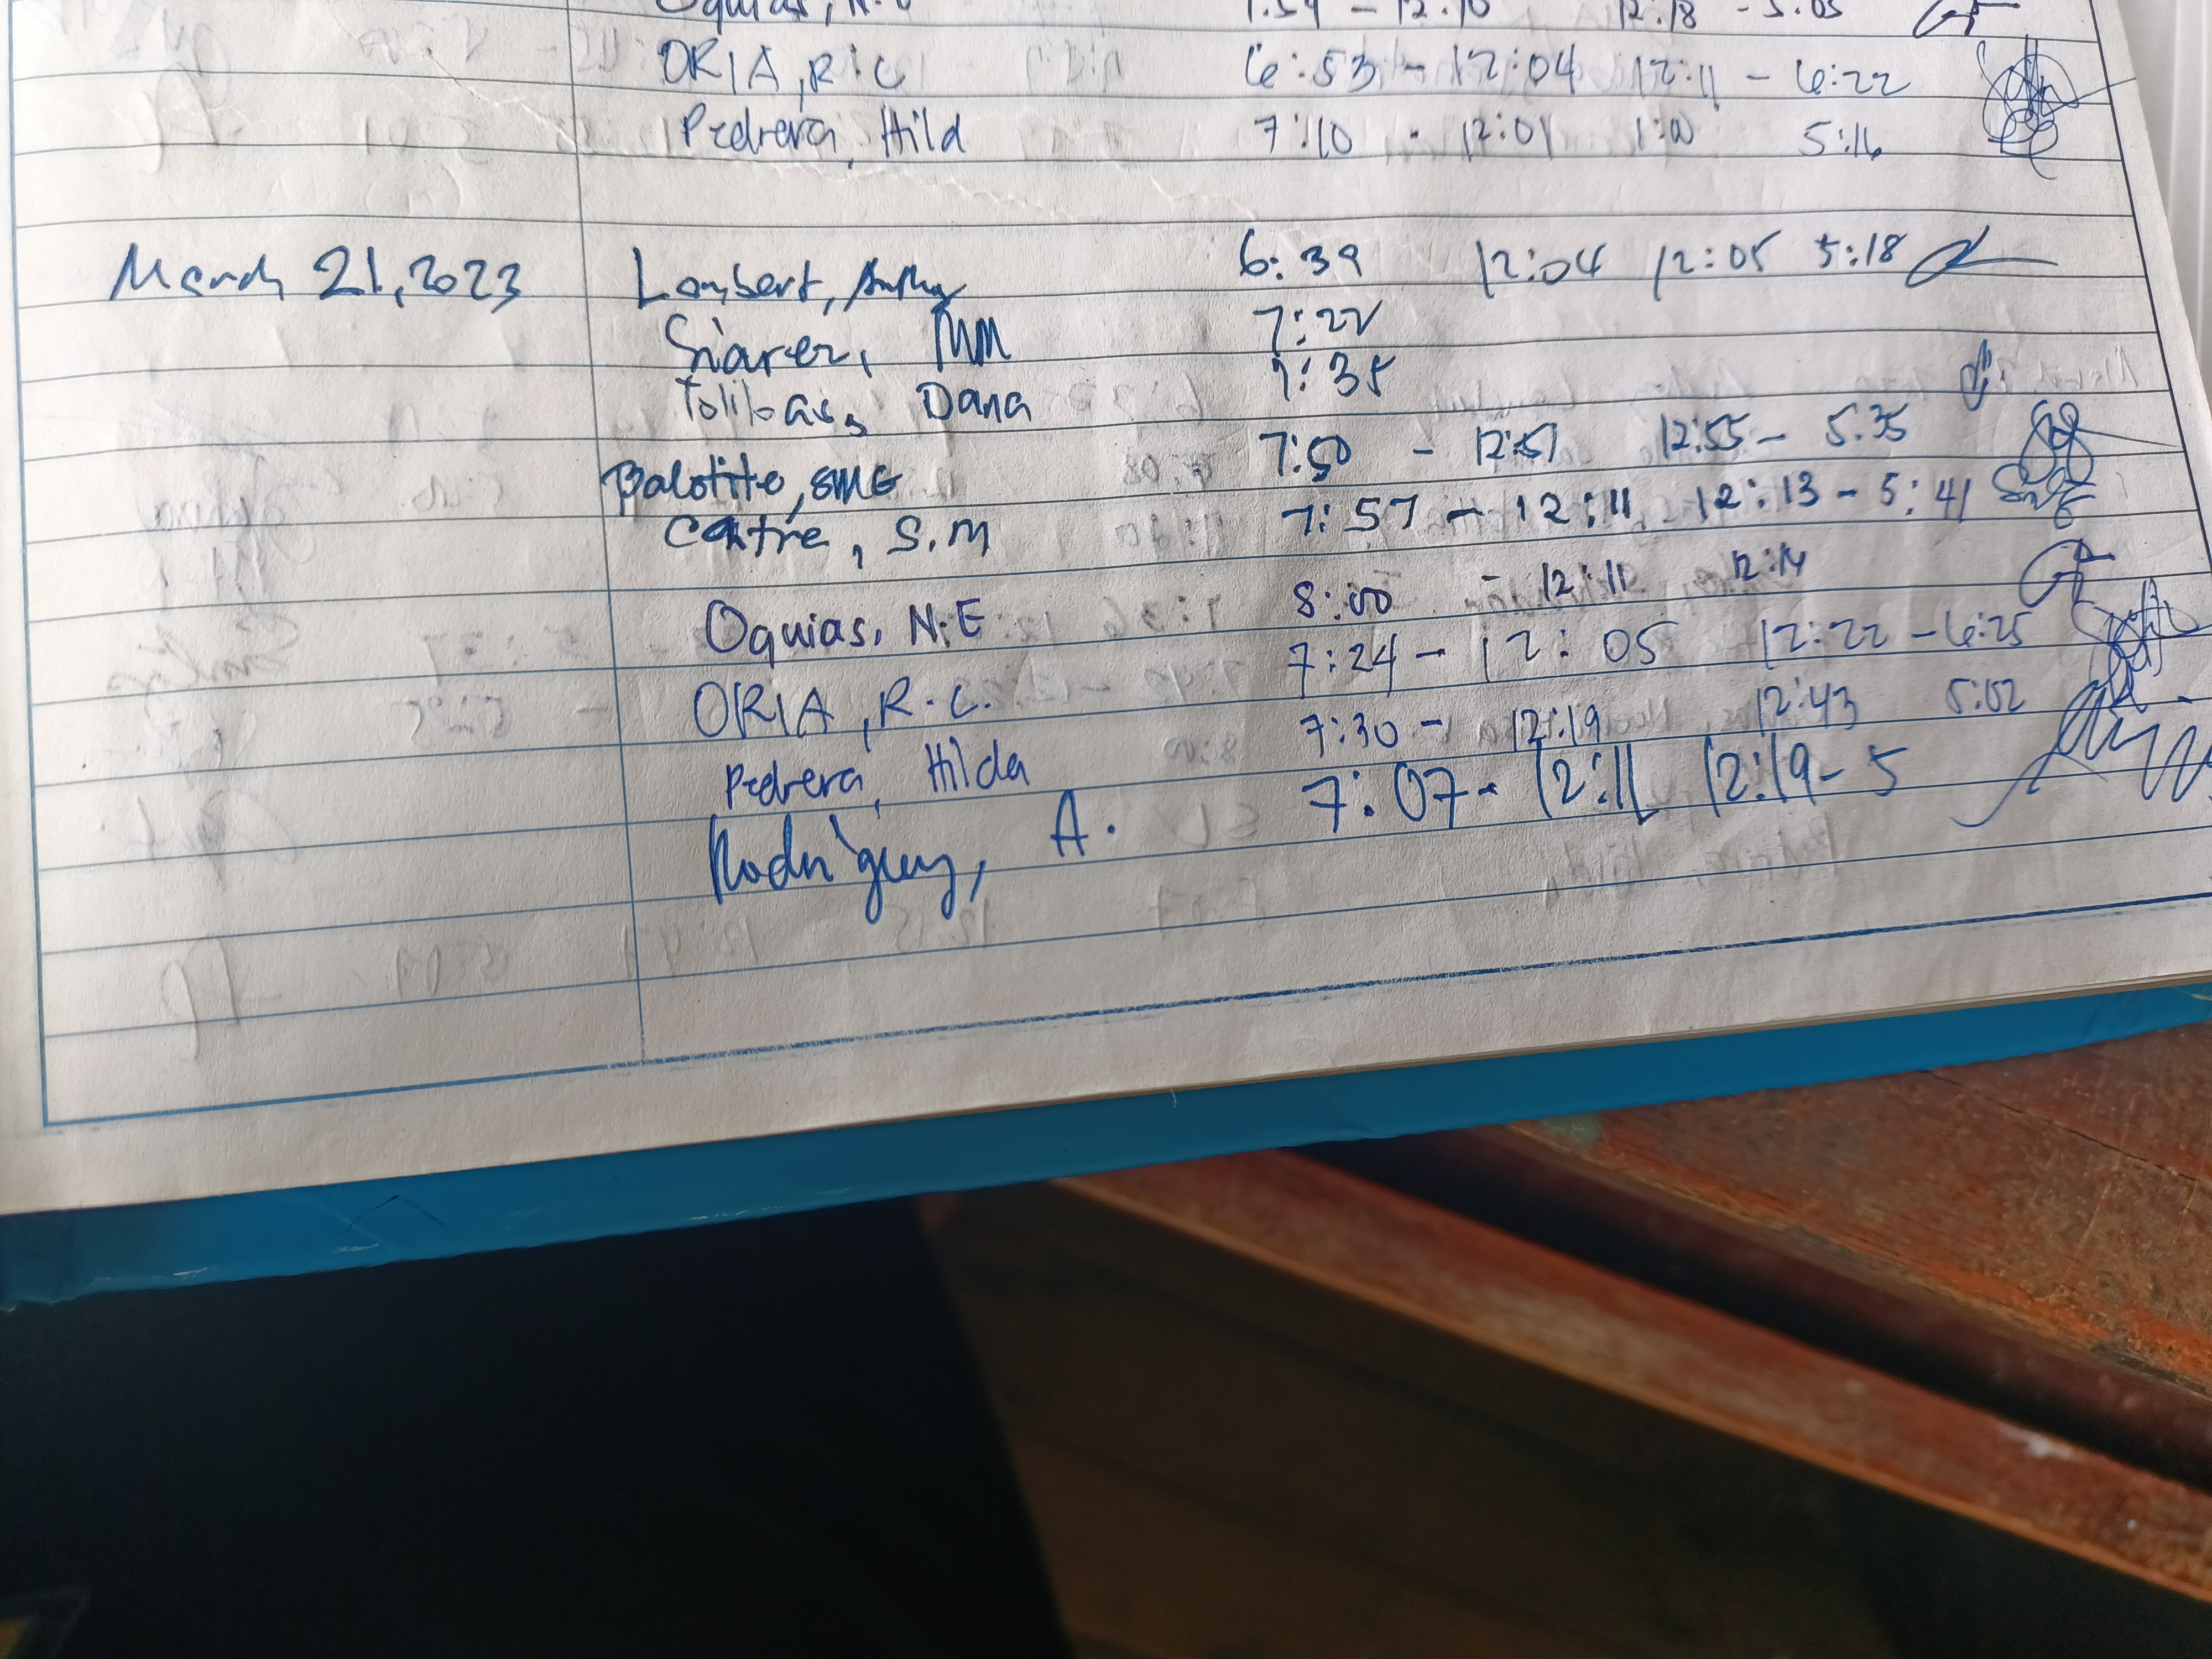 Oquias, N.E 7:59 - 12:10 12:18 - 5:05
ORIA, R.C 6:53 - 12:04 12:11 - 6:22
Pedrera, Hild 7:10 - 12:01 1:00 5:16
March 21, 2023 Lambert, 6:39 12:04 12:05 5:18
Siarez, MM 7:22
Tolibas, Dana 7:35
Balotite, SMG 7:50 - 12:51 12:55 - 5:35
Catre, S.M 7:57 - 12:11 12:13 - 5:41
Oquias, N.E 8:00 - 12:11 12:14
ORIA, R.C. 7:24 - 12:05 12:22 - 6:25
Pedrera, Hilda 7:30 - 12:19 12:43 5:02
Rodriguez, A. 7:07 - 12:11 12:19 - 5